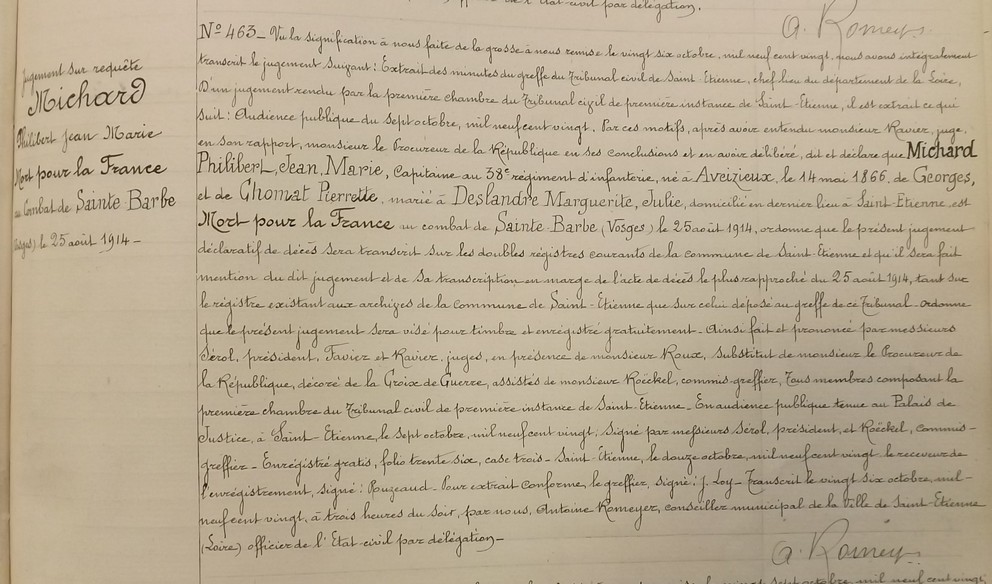 de l'Etat-civil par délégation.
a. Romeyer
Jugement sur requête
Michard
Philibert Jean Marie
Mort pour la France
au Combat de Sainte Barbe
(Vosges) le 25 août 1914 –
Nº 463 – Vu la signification à nous faite de la grosse à nous remise le vingt six octobre, mil neuf cent vingt, nous avons intégralement
transcrit le jugement suivant : Extrait des minutes du greffe du Tribunal civil de Saint-Etienne, chef lieu du département de la Loire,
D'un jugement rendu par la première chambre du Tribunal civil de première instance de Saint-Etienne, il est extrait ce qui
suit : Audience publique du sept octobre, mil neuf cent vingt. Par ces motifs, après avoir entendu monsieur Ravier, juge,
en son rapport, monsieur le Procureur de la République en ses conclusions et en avoir délibéré, dit et déclare que Michard
Philibert, Jean, Marie, Capitaine au 38e régiment d'infanterie, né à Aveizieux, le 14 mai 1866, de Georges,
et de Chomat Pierrette, marié à Deslandre Marguerite, Julie, domicilié en dernier lieu à Saint-Etienne, est
Mort pour la France au combat de Sainte-Barbe (Vosges) le 25 août 1914, ordonne que le présent jugement
déclaratif de décès sera transcrit sur les doubles régistres courants de la commune de Saint-Etienne et qu'il sera fait
mention du dit jugement et de sa transcription en marge de l'acte de décès le plus rapproché du 25 août 1914, tant sur
le régistre existant aux archives de la Commune de Saint-Etienne que sur celui déposé au greffe de ce Tribunal – ordonne
que le présent jugement sera visé pour timbre et enrégistré gratuitement – Ainsi fait et prononcé par messieurs
Sérol, président, Favier et Ravier, juges, en présence de monsieur Roux, substitut de monsieur le Procureur de
la République, décoré de la Croix de Guerre, assistés de monsieur Roëckel, commis-greffier, Tous membres composant la
première chambre du Tribunal civil de première instance de Saint-Etienne – En audience publique tenue au Palais de
Justice, à Saint-Etienne, le sept octobre, mil neuf cent vingt. Signé par messieurs Sérol, président, et Roëckel, commis-
greffier – Enrégistré gratis, folio trente six, case trois – Saint-Etienne, le douze octobre, mil neuf cent vingt le receveur de
l'enrégistrement, signé : Pouzeaud – Pour extrait conforme, le greffier, signé : J. Loy – Transcrit le vingt six octobre, mil-
neuf cent vingt, à trois heures du soir, par nous, Antoine Romeyer, conseiller municipal de la Ville de Saint-Etienne
(Loire) officier de l'Etat-civil par délégation –
a. Romeyer
octobre, mil neuf cent vingt,